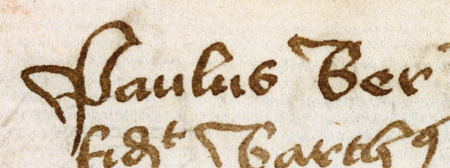 Paulus Ber
fidt Barthꝰ